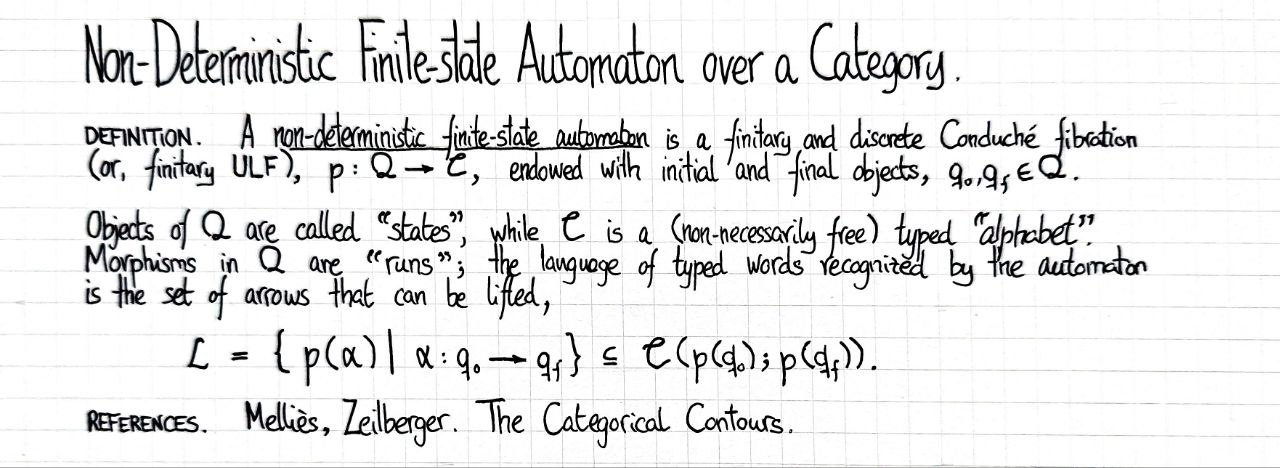 Non-Deterministic Finite-state Automaton over a Category.
DEFINITION. A non-deterministic finite-state automaton is a finitary and discrete Conduché fibration
(or, finitary ULF), p : Q → C, endowed with initial and final objects, q₀, q_f ∈ Q.
Objects of Q are called "states", while C is a (non-necessarily free) typed "alphabet".
Morphisms in Q are "runs"; the language of typed words recognized by the automaton
is the set of arrows that can be lifted,
L = { p(α) | α : q₀ → q_f } ⊆ C(p(q₀); p(q_f)).
REFERENCES. Melliès, Zeilberger. The Categorical Contours.